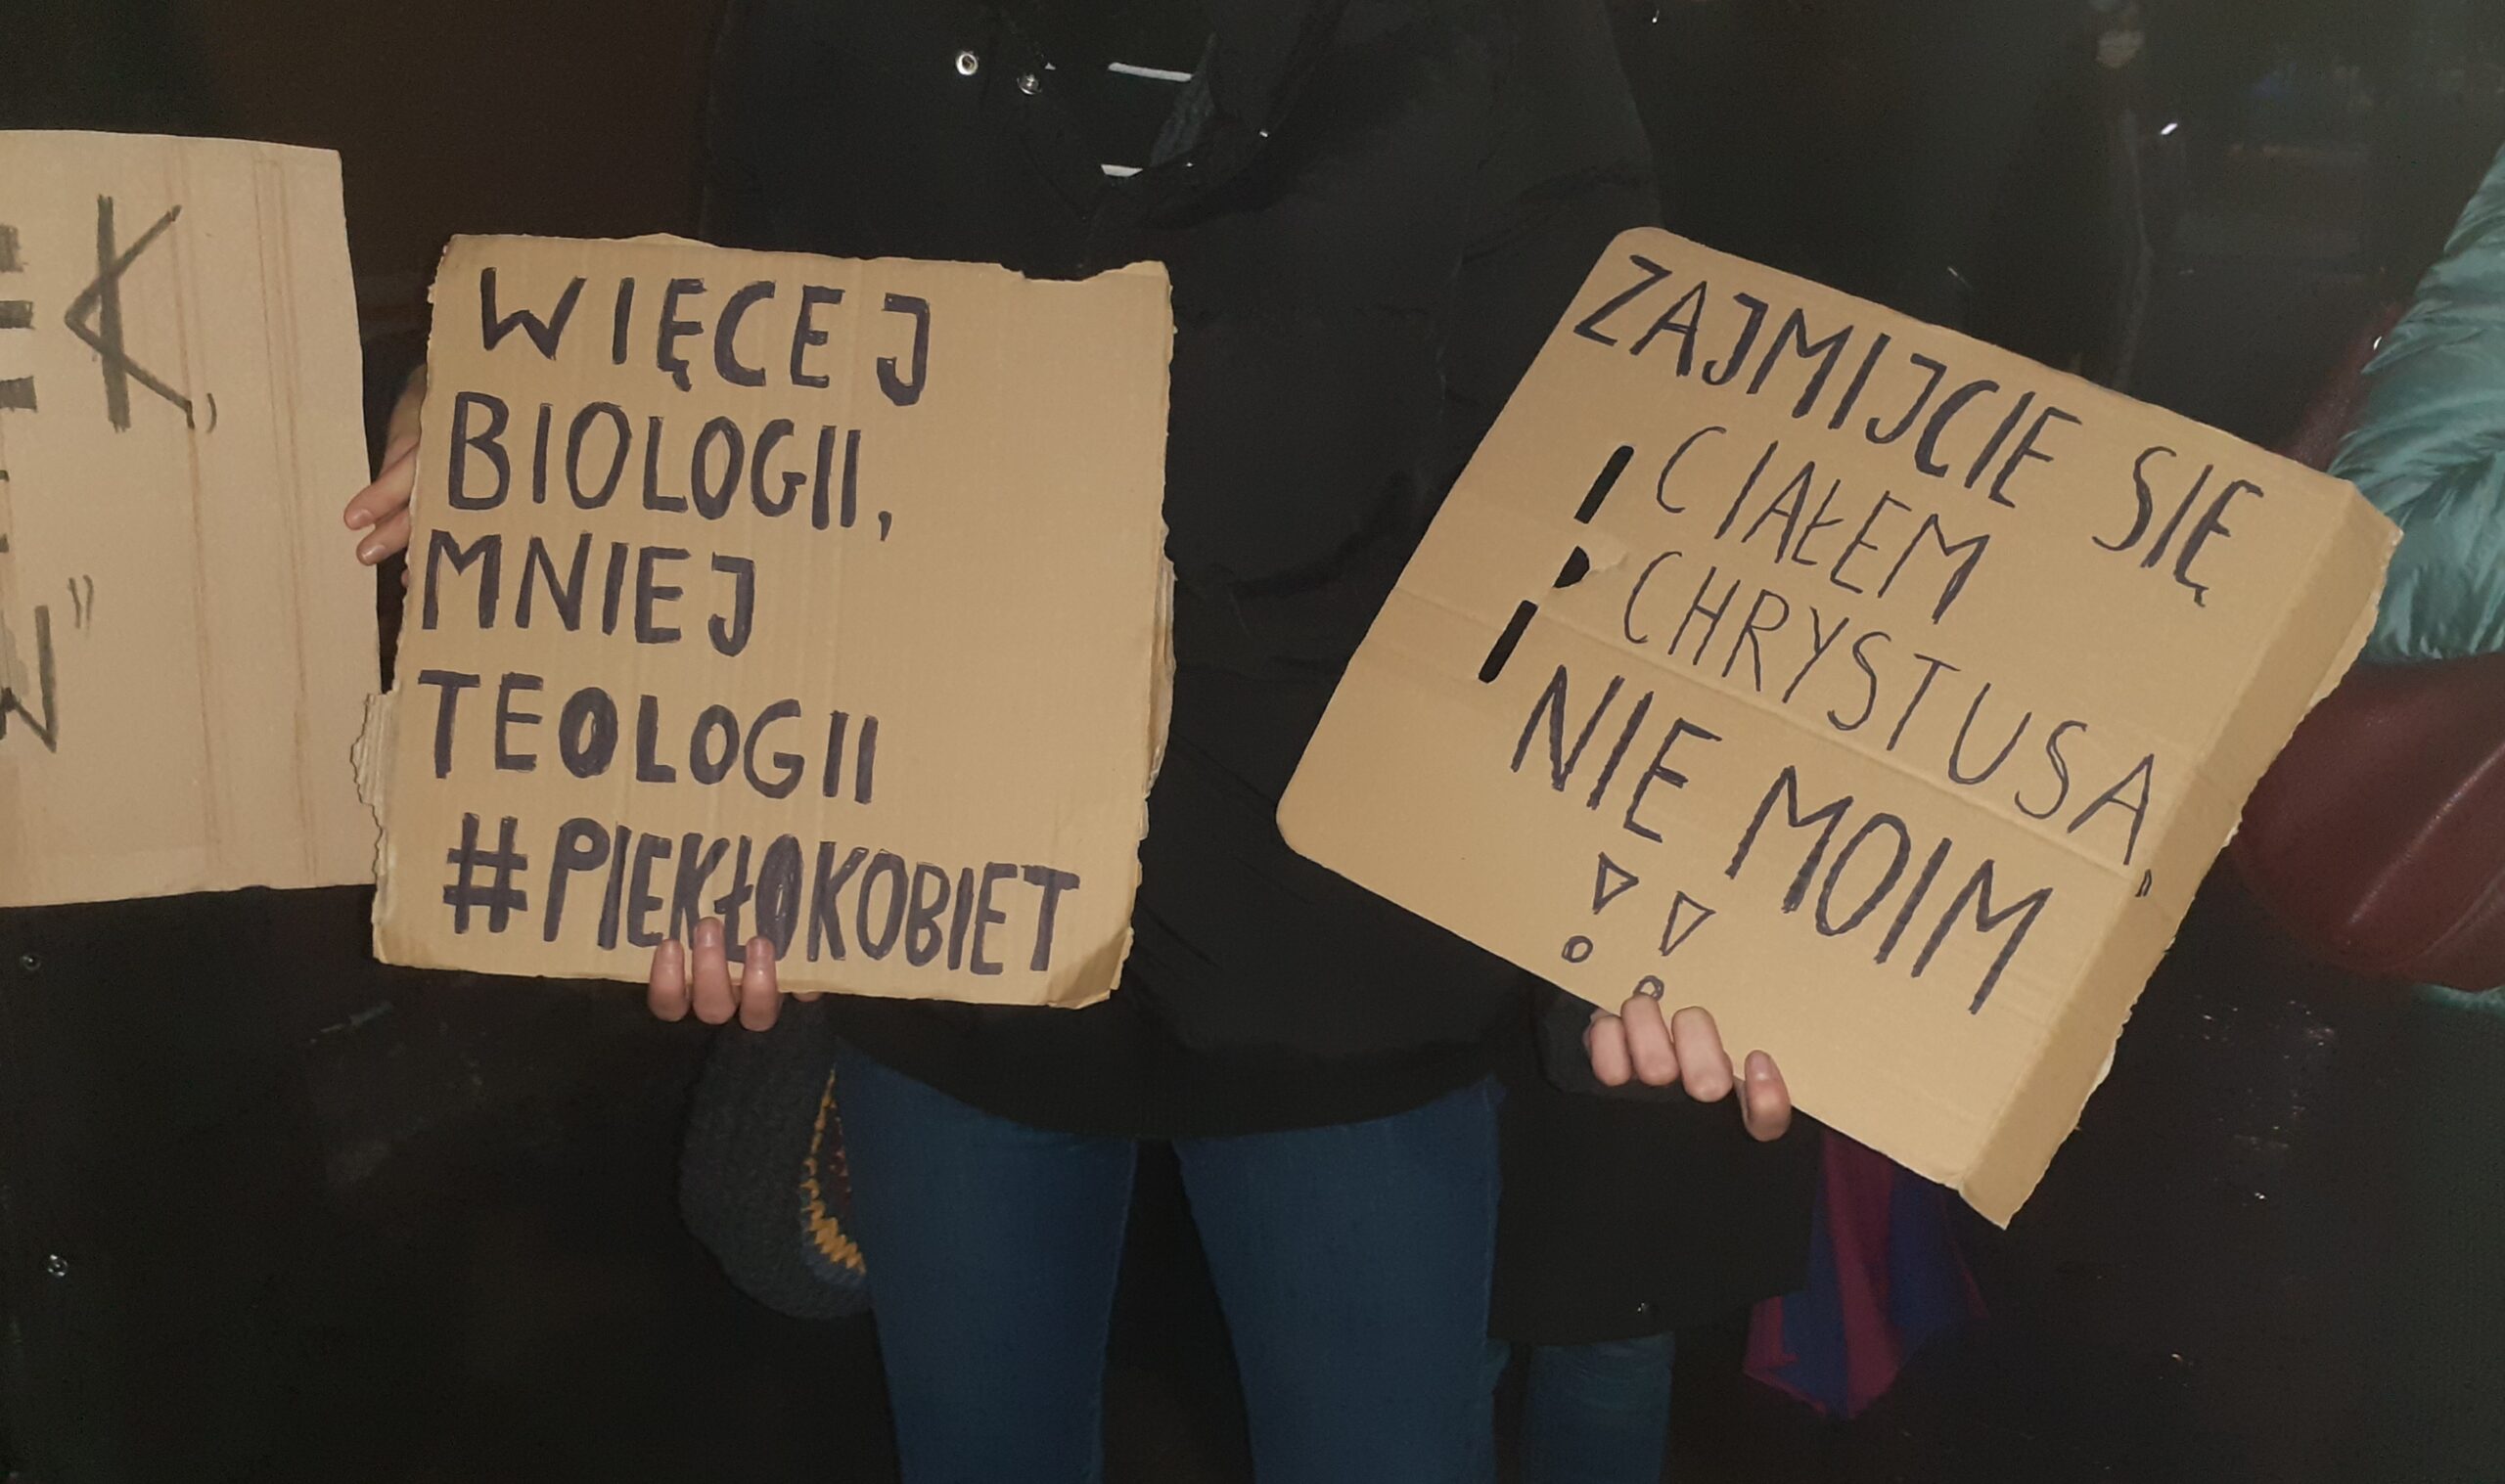 WIĘCEJ
BIOLOGII,
MNIEJ
TEOLOGII
#PIEKŁOKOBIET
ZAJMIJCIE SIĘ
CIAŁEM
CHRYSTUSA,
NIE MOIM
!!